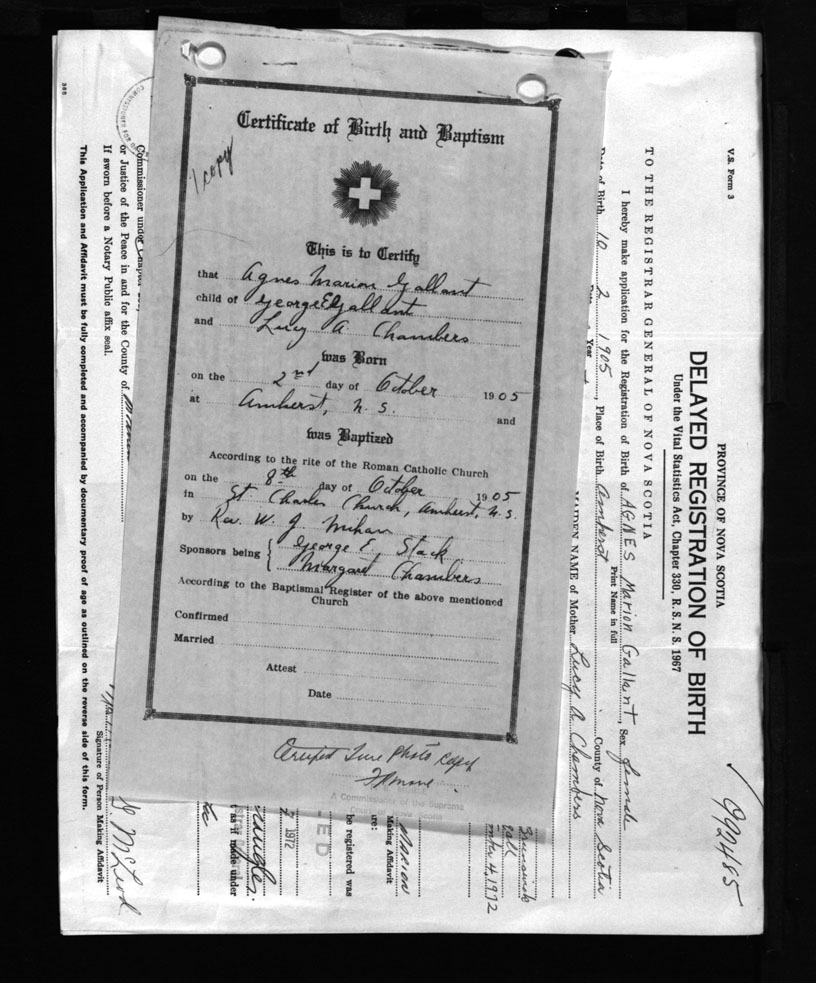 Certificate of Birth and Baptism
1 copy
This is to Certify
that Agnes Marion Gallant
child of George E Gallant
and Lucy A Chambers
was Born
on the 2nd day of October 1905
at Amherst, N.S. and
was Baptized
According to the rite of the Roman Catholic Church
on the 8th day of October 1905
in St Charles Church, Amherst, N.S.
by Rev. W. J. Mihan
Sponsors being George E. Stack
Margaret Chambers
According to the Baptismal Register of the above mentioned
Church
Confirmed
Married
Attest
Date
True Photo Copy
A Commissioner of the Supreme
V.S. Form 3
PROVINCE OF NOVA SCOTIA
DELAYED REGISTRATION OF BIRTH
Under the Vital Statistics Act, Chapter 330, R.S.N.S. 1967
992485
TO THE REGISTRAR GENERAL OF NOVA SCOTIA
I hereby make application for the Registration of Birth of AGNES Marion Gallant, Sex female
Print Name in full
Date of Birth 10 2 1905, Place of Birth Amherst County of Nova Scotia
Year
MAIDEN NAME of Mother Lucy A Chambers
Brunswick
4, 1972
Making Affidavit
MARION
be registered was
1972
as if made under
Commissioner under Chapter
or Justice of the Peace in and for the County of
If sworn before a Notary Public affix seal.
D. McLeod
Signature of Person Making Affidavit
This Application and Affidavit must be fully completed and accompanied by documentary proof of age as outlined on the reverse side of this form.
368